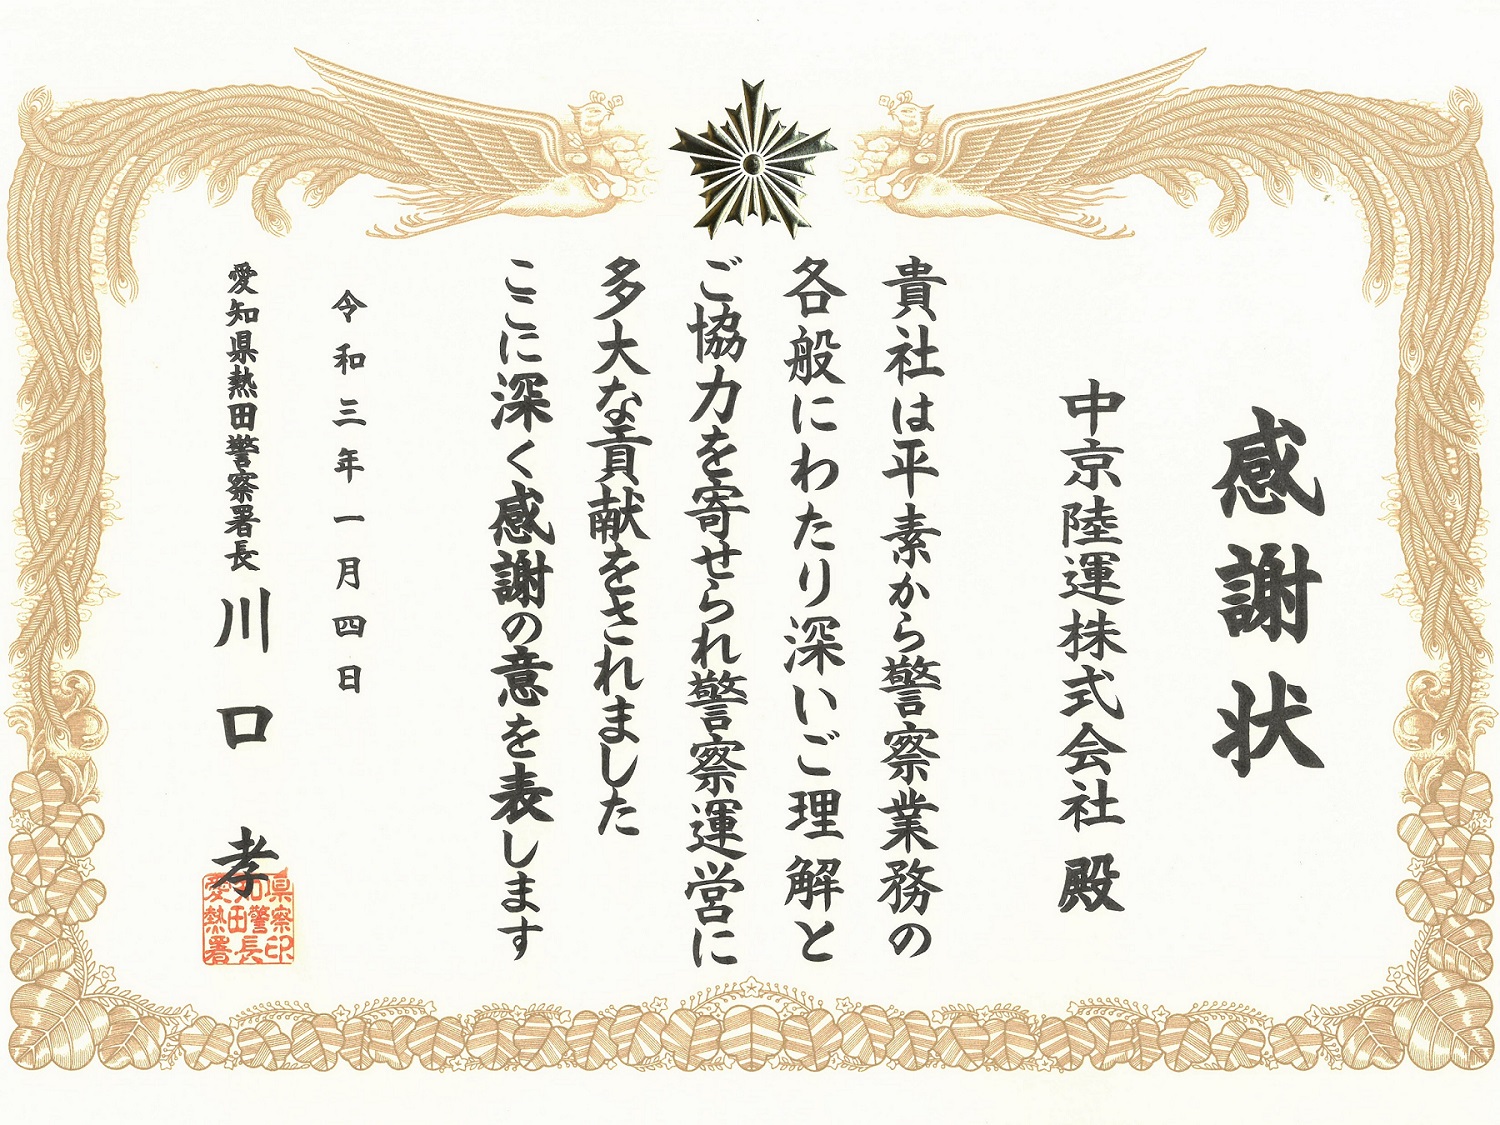 感謝状
中京陸運株式会社 殿
貴社は平素から警察業務の
各般にわたり深いご理解と
ご協力を寄せられ警察運営に
多大な貢献をされました
ここに深く感謝の意を表します
令和三年一月四日
愛知県熱田警察署長 川口孝
県察印
知警長
愛田
熱署